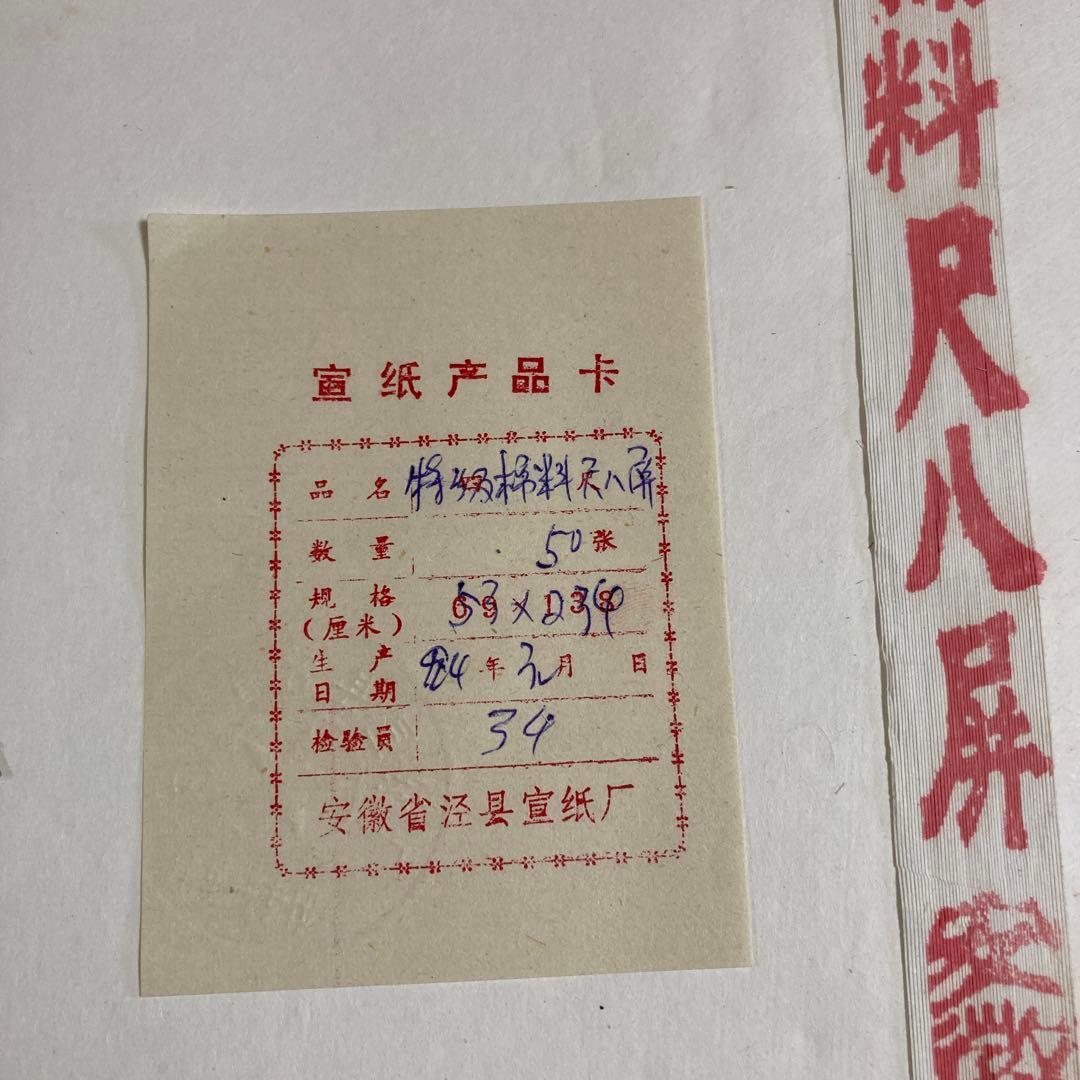 宣纸产品卡
品名 特级棉料尺八屏
数量 50张
规格(厘米) 53×234
生产日期 84年 月 日
检验员 34
安徽省泾县宣纸厂
料尺八屏 安徽